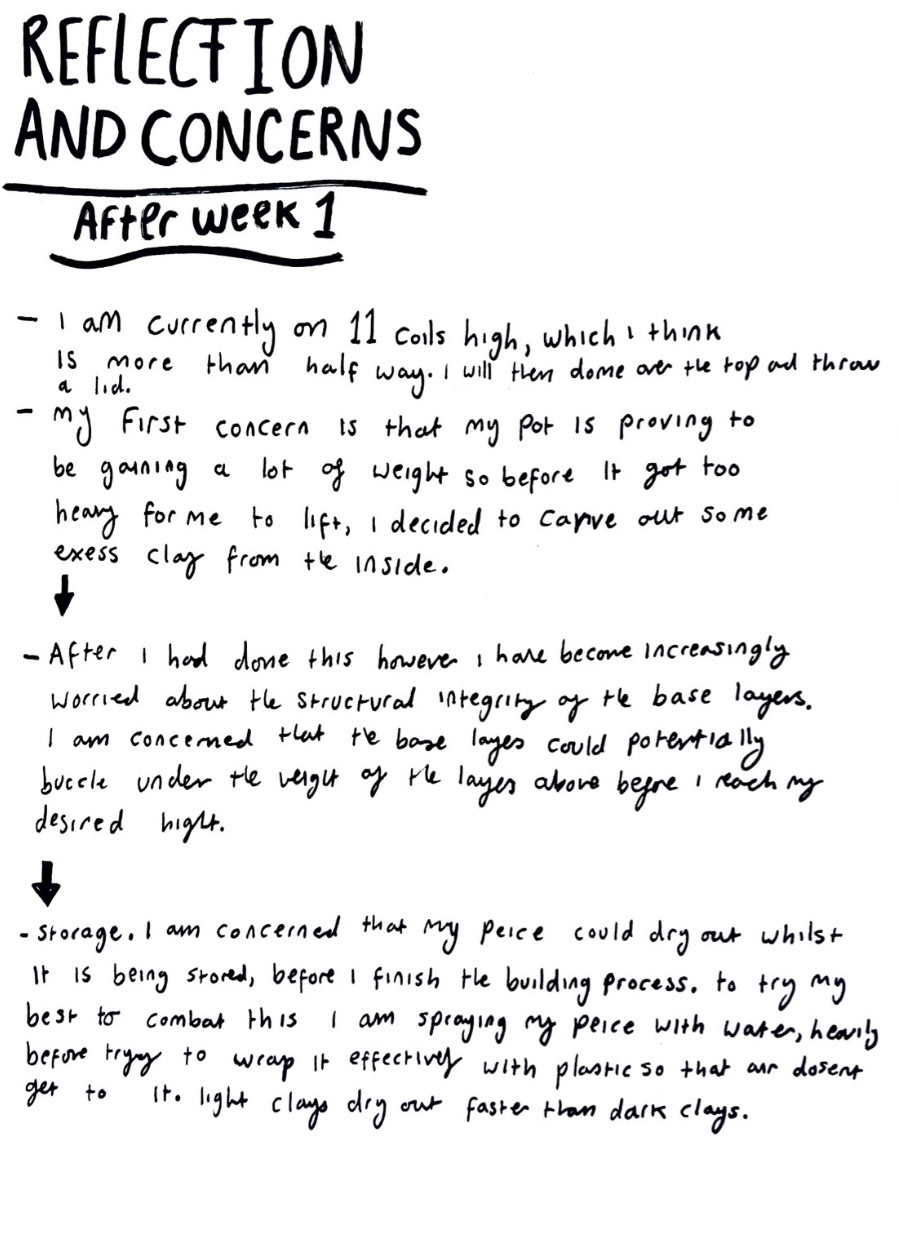 REFLECTION
AND CONCERNS
After week 1
- I am currently on 11 coils high, which i think
is more than half way. I will then dome over the top and throw
a lid.
- my first concern is that my pot is proving to
be gaining a lot of weight so before it got too
heavy for me to lift, i decided to carve out some
exess clay from the inside.
- After I had done this however i have become increasingly
worried about the structural integrity of the base layers.
I am concerned that the base layes could potentially
buccle under the weight of the layes above before i reach my
desired hight.
- storage. I am concerned that my peice could dry out whilst
it is being stored, before I finish the building process. to try my
best to combat this I am spraying my peice with water, heavily
before trying to wrap it effectively with plastic so that air dosent
get to it. light clays dry out faster than dark clays.